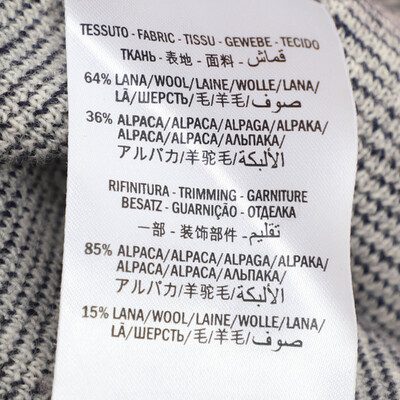 TESSUTO - FABRIC - TISSU - GEWEBE - TECIDO
ТКАНЬ - 表地 - 面料 - قماش
64% LANA/WOOL/LAINE/WOLLE/LANA/
LÃ/ШЕРСТЬ/毛/羊毛/صوف
36% ALPACA/ALPACA/ALPAGA/ALPAKA/
ALPACA/ALPACA/АЛЬПАКА/
アルパカ/羊驼毛/الألبكة
RIFINITURA - TRIMMING - GARNITURE
BESATZ - GUARNIÇÃO - ОТДЕЛКА
一部 - 装饰部件 - تقليم
85% ALPACA/ALPACA/ALPAGA/ALPAKA/
ALPACA/ALPACA/АЛЬПАКА/
アルパカ/羊驼毛/الألبكة
15% LANA/WOOL/LAINE/WOLLE/LANA/
LÃ/ШЕРСТЬ/毛/羊毛/صوف